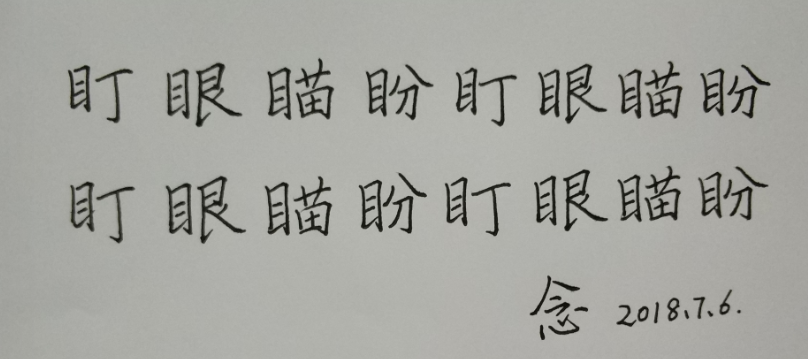 盯眼瞄盼盯眼瞄盼
盯眼瞄盼盯眼瞄盼
念 2018.7.6.